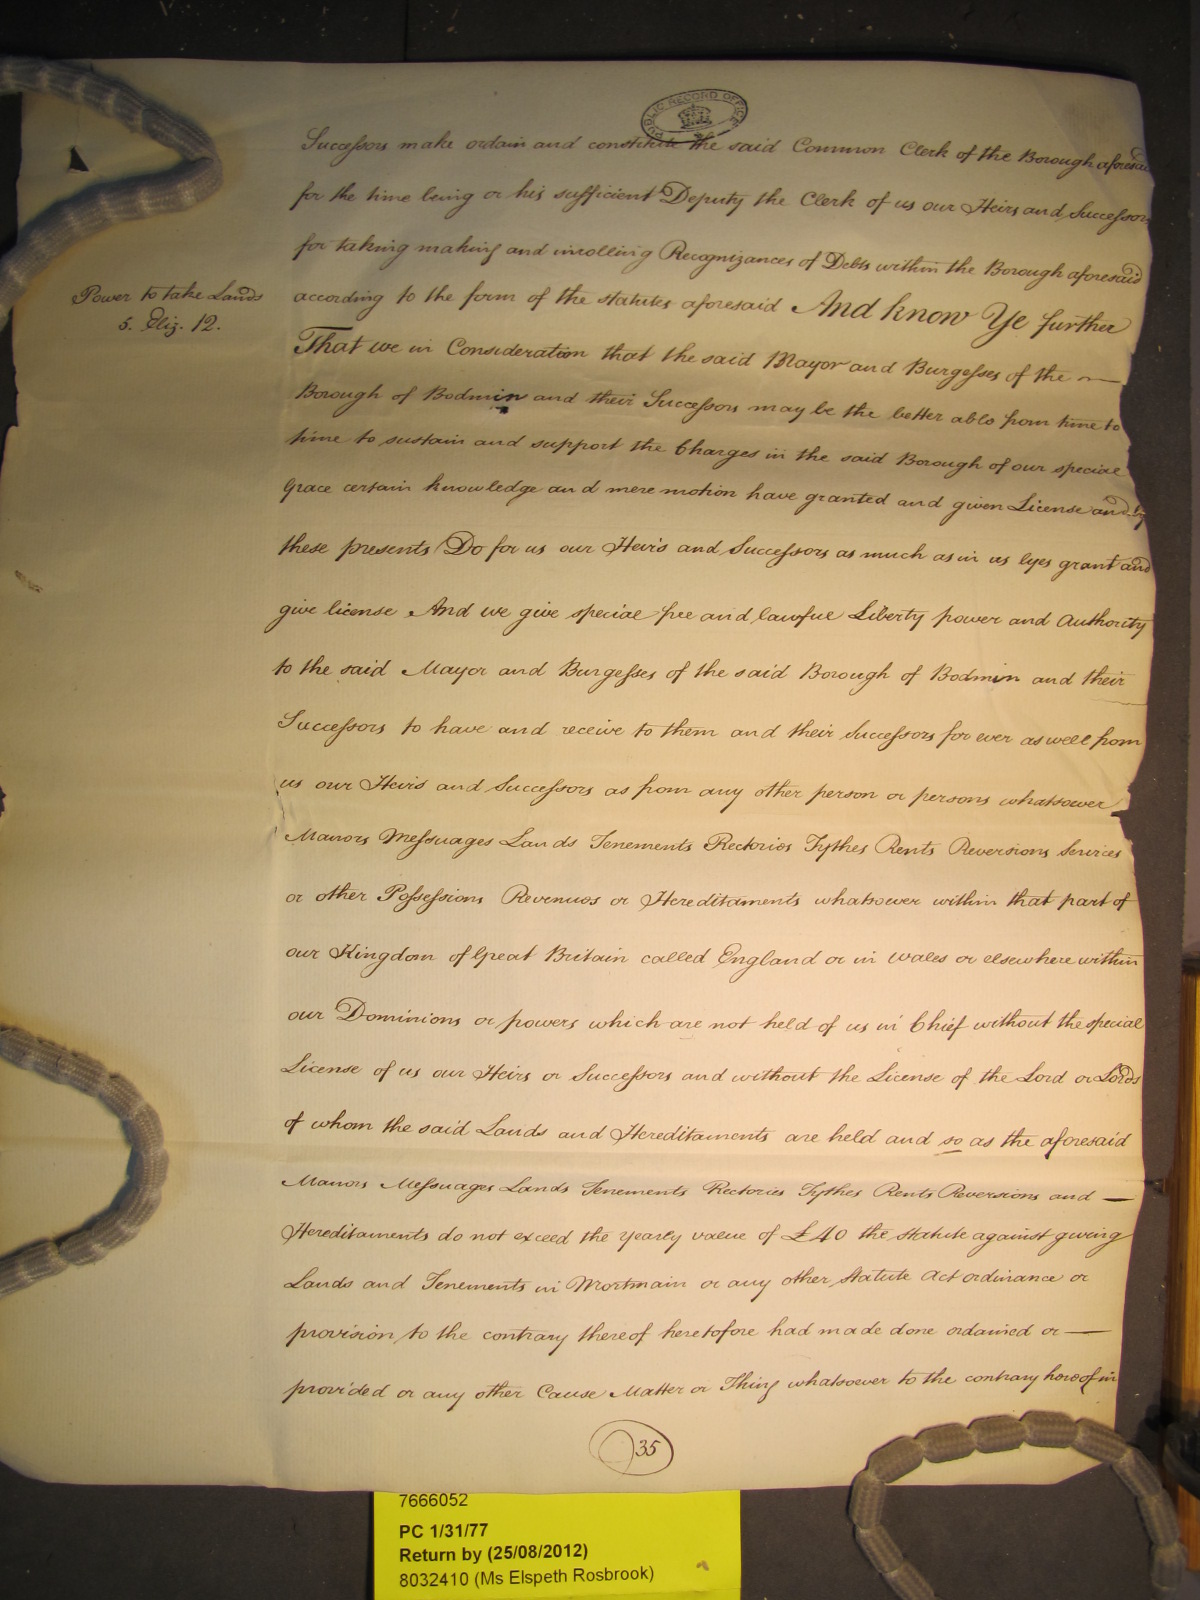 PUBLIC RECORD OFFICE
Successors make ordain and constitute the said Common Clerk of the Borough aforesaid
for the time being or his sufficient Deputy the Clerk of us our Heirs and Successors
for taking making and inrolling Recognizances of Debts within the Borough aforesaid
Power to take Lands
5. Eliz. 12.
according to the form of the statutes aforesaid And know Ye further
That we in Consideration that the said Mayor and Burgesses of the —
Borough of Bodmin and their Successors may be the better able from time to
time to sustain and support the Charges in the said Borough of our special
Grace certain knowledge and mere motion have granted and given License and by
these presents Do for us our Heirs and Successors as much as in us lyes grant and
give license And we give special free and lawful Liberty power and Authority
to the said Mayor and Burgesses of the said Borough of Bodmin and their
Successors to have and receive to them and their Successors for ever as well from
us our Heirs and Successors as from any other person or persons whatsoever
Manors Messuages Lands Tenements Rectories Tythes Rents Reversions Services
or other Possessions Revenues or Hereditaments whatsoever within that part of
our Kingdom of Great Britain called England or in Wales or elsewhere within
our Dominions or powers which are not held of us in Chief without the special
License of us our Heirs or Successors and without the License of the Lord or Lords
of whom the said Lands and Hereditaments are held and so as the aforesaid
Manors Messuages Lands Tenements Rectories Tythes Rents Reversions and —
Hereditaments do not exceed the yearly value of £40 the statute against giving
Lands and Tenements in Mortmain or any other Statute Act ordinance or
provision to the contrary thereof heretofore had made done ordained or —
provided or any other Cause Matter or Thing whatsoever to the contrary hereof in
35
7666052
PC 1/31/77
Return by (25/08/2012)
8032410 (Ms Elspeth Rosbrook)